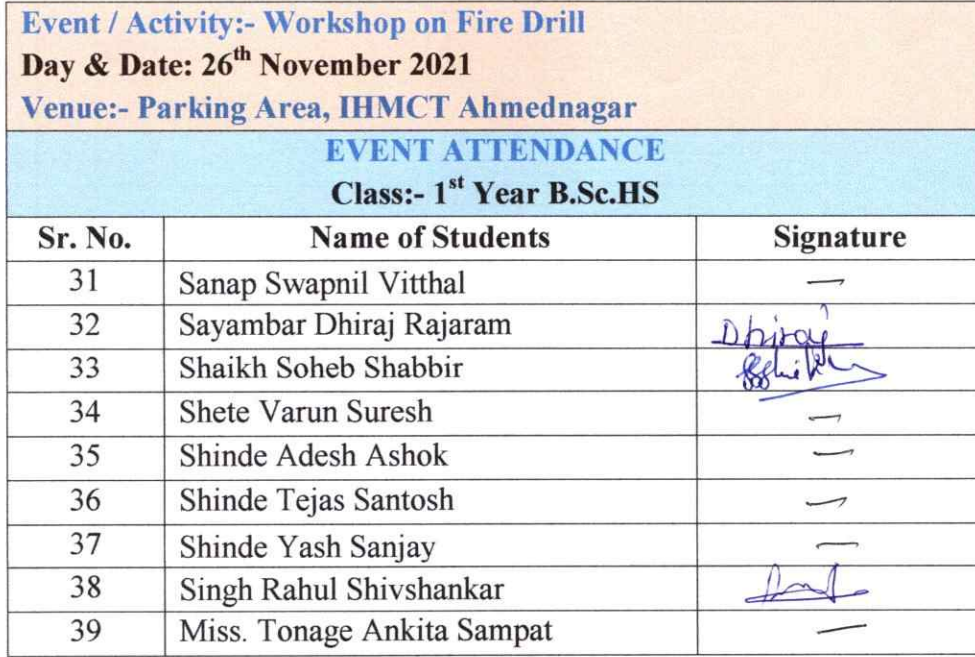 Event / Activity:- Workshop on Fire Drill
Day & Date: 26th November 2021
Venue:- Parking Area, IHMCT Ahmednagar
EVENT ATTENDANCE
Class:- 1st Year B.Sc.HS
Sr. No. Name of Students Signature
31 Sanap Swapnil Vitthal —
32 Sayambar Dhiraj Rajaram Dhiraj
33 Shaikh Soheb Shabbir
34 Shete Varun Suresh —
35 Shinde Adesh Ashok —
36 Shinde Tejas Santosh —
37 Shinde Yash Sanjay —
38 Singh Rahul Shivshankar
39 Miss. Tonage Ankita Sampat —